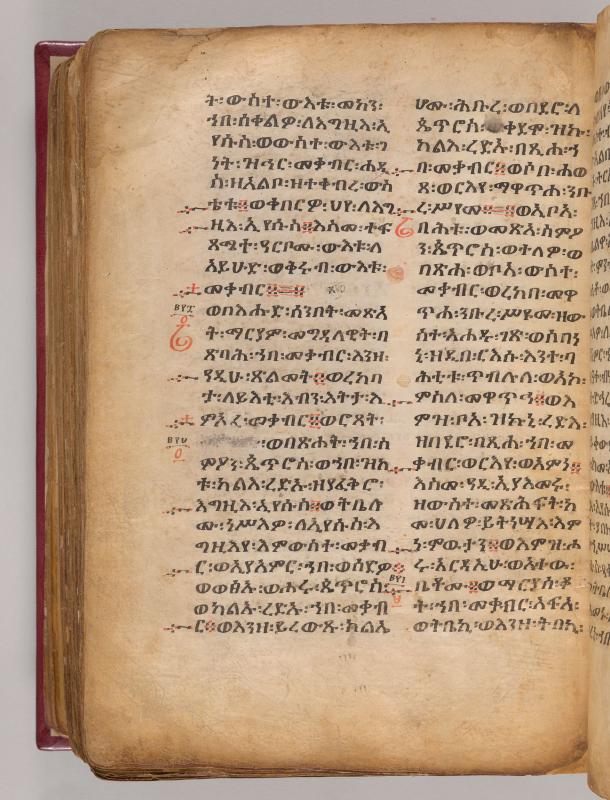 ት፡ውስተ፡ውእቱ፡መካን፡
ኀበ፡ሰቀልዎ፡ለእግዚእ፡ኢ
የሱስ፡ወውስተ፡ውእቱ፡ገ
ነት፡ዝኅር፡መቃብር፡ሐዲ
ስ፡ዘአልቦ፡ዘተቀብረ፡ውስ
ቴቱ፨ወቀበርዎ፡ህየ፡ለእግ
ዚእ፡ኢየሱስ፨እስመ፡ተፍ
ጻሜት፡ዓርቦሙ፡ውእቱ፡ለ
አይሁድ፡ወቅሩብ፡ውእቱ፡
መቃብር፨=፨
ወበእሑድ፡ሰንበት፡መጽአ
ት፡ማርያም፡መግደላዊት፡በ
ጽባሕ፡ኀበ፡መቃብር፡እንዘ፡
ዓዲሁ፡ጽልመት፨ወረከበ
ታ፡ለይእቲ፡እብን፡እትታ፡እ
ምአፈ፡መቃብር፨ወሮጸት፡
፡ወበጽሐት፡ኀበ፡ስ
ምዖን፡ጴጥሮስ፡ወኀበ፡ዝክ
ቱ፡ካልእ፡ረድኡ፡ዘያፈቅሮ፡
እግዚእ፡ኢየሱስ፨ወትቤሎ
ሙ፡ነሥእዎ፡ለኢየሱስ፡እ
ግዚእየ፡እምውስተ፡መቃብ
ር፡ወኢየአምር፡ኀበ፡ወሰድዎ
ወወፅአ፡ወሖረ፡ጴጥሮስ፡
ወካልኡ፡ረድኡ፡ኀበ፡መቃብ
ር፨ወእንዘ፡ይረውጹ፡ክልኤ
ሆሙ፡ሕቡረ፡ወበደሮ፡ለ
ጴጥሮስ፡ወቀደሞ፡ዝኩ፡
ካልእ፡ረድኡ፡በጺሐ፡ኀ
በ፡መቃብር፨ወሶበ፡ሐወ
ጸ፡ወርእየ፡ማዋጥሐ፡ንቡ
ረ፡ሥየመ፨=፨ወኢቦአ፡
በሐተ፡ወመጽአ፡ስምዖ
ን፡ጴጥሮስ፡ወተለዎ፡ወ
በጽሐ፡ወቦአ፡ውስተ፡
መቃብር፡ወረከበ፡መዋ
ጥሐ፡ንቡረ፡ሥዩመ፡ዘው
ስተ፡አሐዱ፡ገጽ፡ወሰበነ
ኒ፡ዘዲበ፡ርእሱ፡እንተ፡ባ
ሕቲቱ፡ጥብሉለ፡ወአኮ፡
ምስለ፡መዋጥኅ፨ወእ
ምዝ፡ቦአ፡ዝኩኒ፡ረድእ፡
ዘበደሮ፡በጺሐ፡ኀበ፡መ
ቃብር፡ወርእየ፡ወአምነ፨
እስመ፡ዓዲ፡ኢያእመሩ፡
ዘውስተ፡መጽሐፍት፡ከ
መ፡ሀለዎ፡ይትነሣእ፡እም
ነ፡ምዉታን፨ወእምዝ፡ሖ
ሩ፡አርዳኢሁ፡ወአተዉ፡
ቤቶሙ፨ወማርያሰ፡ቆ
ት፡ኀበ፡መቃብር፡አፍአ፡
ወትበኪ፡ወእንዘ፡ትበኪ፡